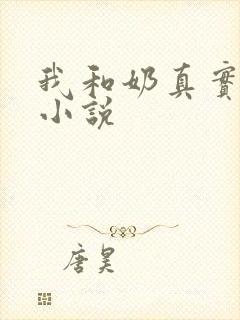 我和奶真實
小說
唐昊